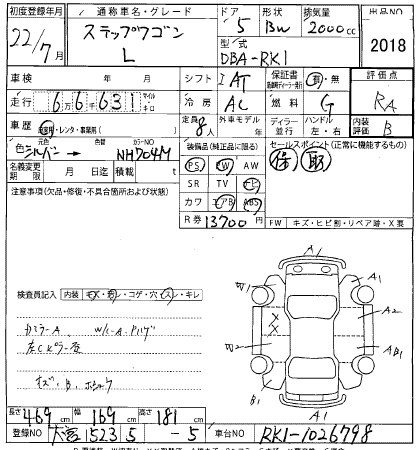 初度登録年月 通称車名・グレード ドア 形状 排気量 出品NO
22/7月 ステップワゴン 5 BW 2000cc 2018
L 型式 DBA-RK1
車検 年 月 シフト IAT 保証書 有・無 評価点
走行 66631 マイル キロ 冷房 AC 燃料 G RA
車歴 自家用・レンタ・事業用( ) 定員 8人 外車モデル 年 ディーラー 並行 ハンドル 左・右 内装評価 B
色 シルバー → 色替 カラーNO NH704M 装備品(純正品に限る) セールスポイント(正常に機能するもの)
名義変更期限 月 日迄 積載 t PS PW AW 保 取
注意事項(欠品・修復・不具合箇所および状態) SR TV ナビ
カワ エアB ABS
R券 13700円 FW キズ・ヒビ割・リペア跡・X要
検査員記入 内装 キズ・ヨゴレ・コゲ・穴・スレ・キレ
A1
W1 A1
A2
W2 AB1
B1
A1
カミラーA
左Cピラー
キズ、B、
長さ 469cm 幅 169cm 高さ 181cm
登録NO 大宮 523 5 -5 車台NO RK1-1026798